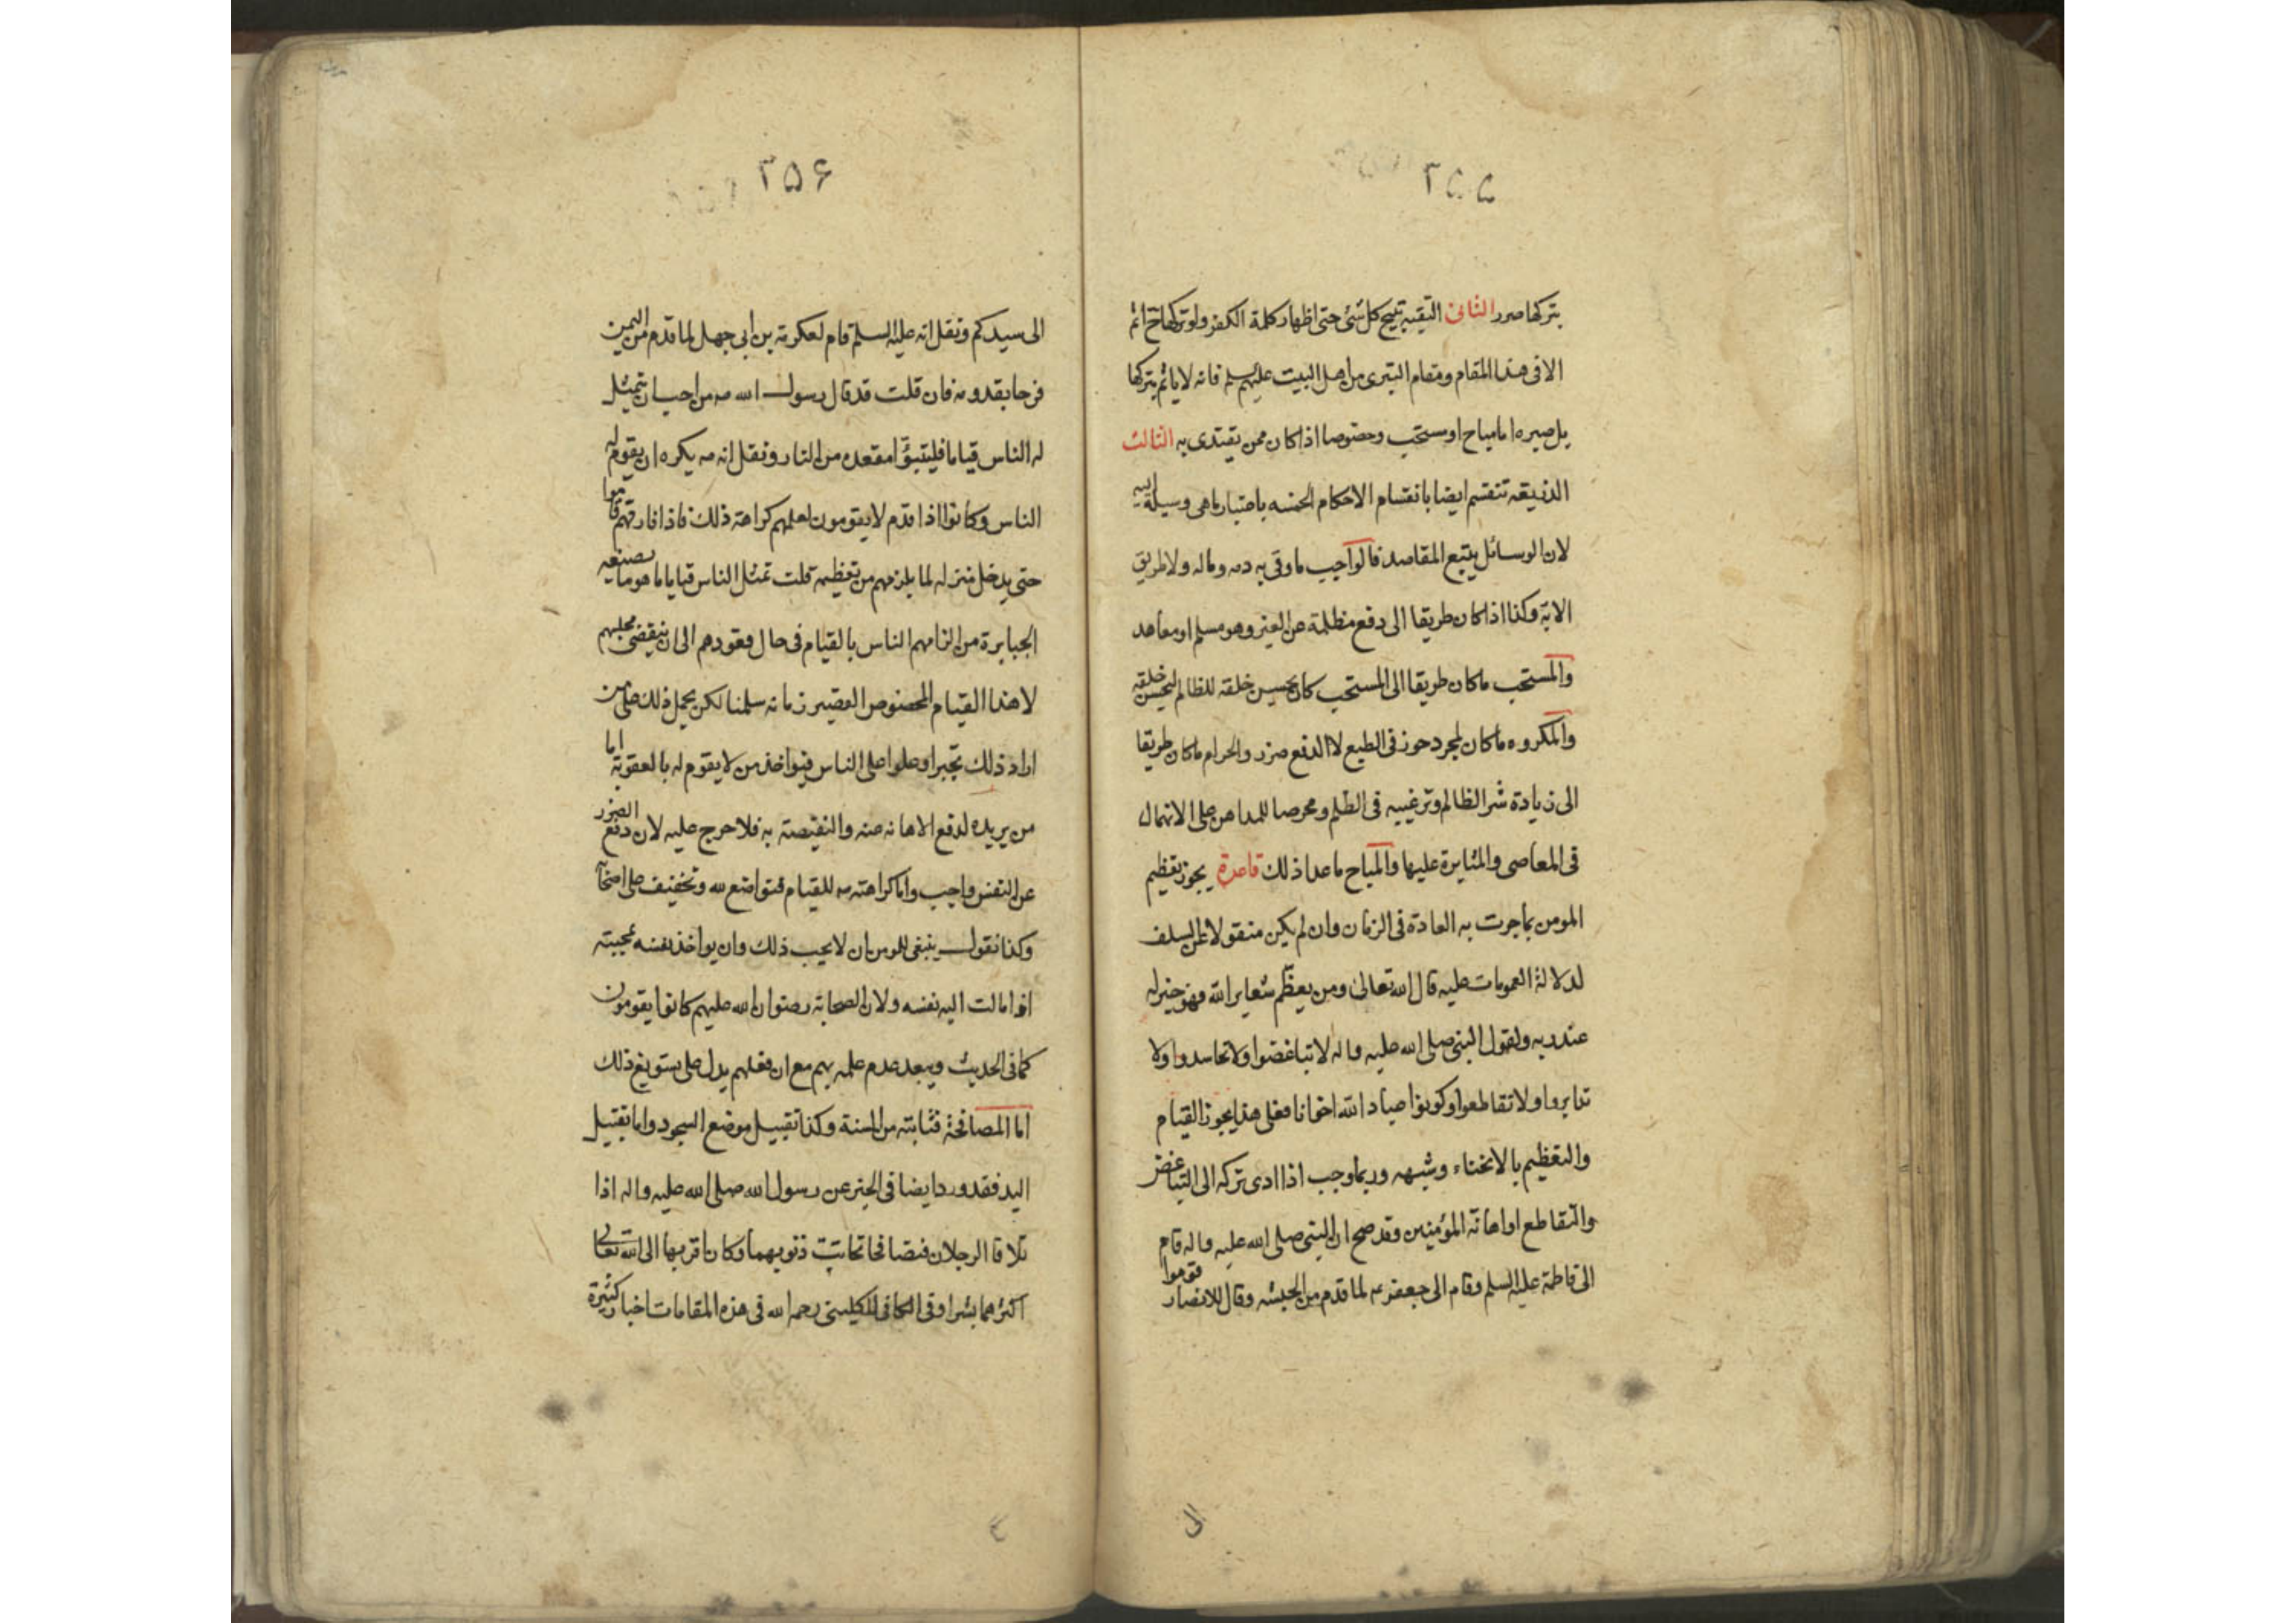 ٢٥٥
يتركها ضرر الثانى التقيه تبيح كل شئ حتى اظهار كلمة الكفر ولو تركها ح اثم
الا فى هذا المقام ومقام التبرى من اهل البيت عليهم السلم فانه لا ياثم بتركها
بل صبره اما مباح او مستحب وخصوصا اذا كان ممن يقتدى به الثالث
الذريعة تنقسم ايضا بانقسام الاحكام الخمسه باعتبار ما هى وسيلة اليه
لان الوسائل يتبع المقاصد فالواجب ما وقى به دمه وماله ولا طريق
الا به وكذا اذا كان طريقا الى دفع مظلمة عن الغير وهو مسلم او معاهد
والمستحب ما كان طريقا الى المستحب كان يحسن خلقه للظالم ليحسن خلقه
والمكروه ما كان لمجرد حوز فى الطبع لا الدفع ضرر والحرام ما كان طريقا
الى زيادة شر الظالم وترغيبه فى الظلم ومحرصا للمداهن على الانهماك
فى المعاصى والمثابرة عليها والمباح ما عدا ذلك قاعدة يجوز تعظيم
المومن بما جرت به العادة فى الزمان وان لم يكن منقولا عن السلف
لدلالة العمومات عليه قال الله تعالى ومن يعظم شعاير الله فهو خير له
عند ربه ولقول النبى صلى الله عليه واله لا تباغضوا ولا تحاسدوا ولا
تدابروا ولا تقاطعوا وكونوا عباد الله اخوانا فعلى هذا يجوز القيام
والتعظيم بالانحناء وشبهه وربما وجب اذا ادى تركه الى التباغض
والتقاطع او اهانة المؤمنين وقد صح ان النبى صلى الله عليه واله قام
الى فاطمة عليها السلم وقام الى جعفر ع م لما قدم من الحبشه وقال للانصار قوموا
الى
٢٥۶
الى سيدكم ونقل انه عليه السلم قام لعكرمة بن ابى جهل لما قدم من اليمن
فرحا بقدومه فان قلت قد قال رسول الله ص من احب ان يتمثل
له الناس قياما فليتبؤا مقعده من النار ونقل انه ص يكره ان يقوم له
الناس وكانوا اذا قدم لا يقومون لعلمهم كراهته ذلك فاذا فارقهم قاموا
حتى يدخل منزله لما يلزمهم من تعظيمه قلت تمثل الناس قياما ما هو ما يصنعه
الجبابرة من الزامهم الناس بالقيام فى حال قعودهم الى ان ينقضى مجلسهم
لا هذا القيام المخصوص القصير زمانه سلمنا لكن يحمل ذلك على من
اراد ذلك تجبرا وعلوا على الناس فيواخذ من لا يقوم له بالعقوبة اما
من يريده لدفع الاهانه عنه والنقيصة به فلا حرج عليه لان دفع الضرر
عن النفس واجب واما كراهته ص للقيام فتواضع لله وتخفيف على اصحابه
وكذا نقول ينبغى للمومن ان لا يحب ذلك وان يواخذ نفسه بمحبته
اذا مالت اليه نفسه ولان الصحابة رضوان الله عليهم كانوا يقومون
كما فى الحديث ويبعد عدم علمه بهم مع ان فعلهم يدل على تسويغ ذلك
اما المصافحة فثابته من السنة وكذا تقبيل موضع السجود واما تقبيل
اليد فقد ورد ايضا فى الخبر عن رسول الله صلى الله عليه واله اذا
تلاقا الرجلان فتصافحا تحاتت ذنوبهما وكان اقربها الى الله تعالى
اكثرهما بشرا وفى الكافى للكلينى رحمه الله فى هذه المقامات اخبار كثيرة